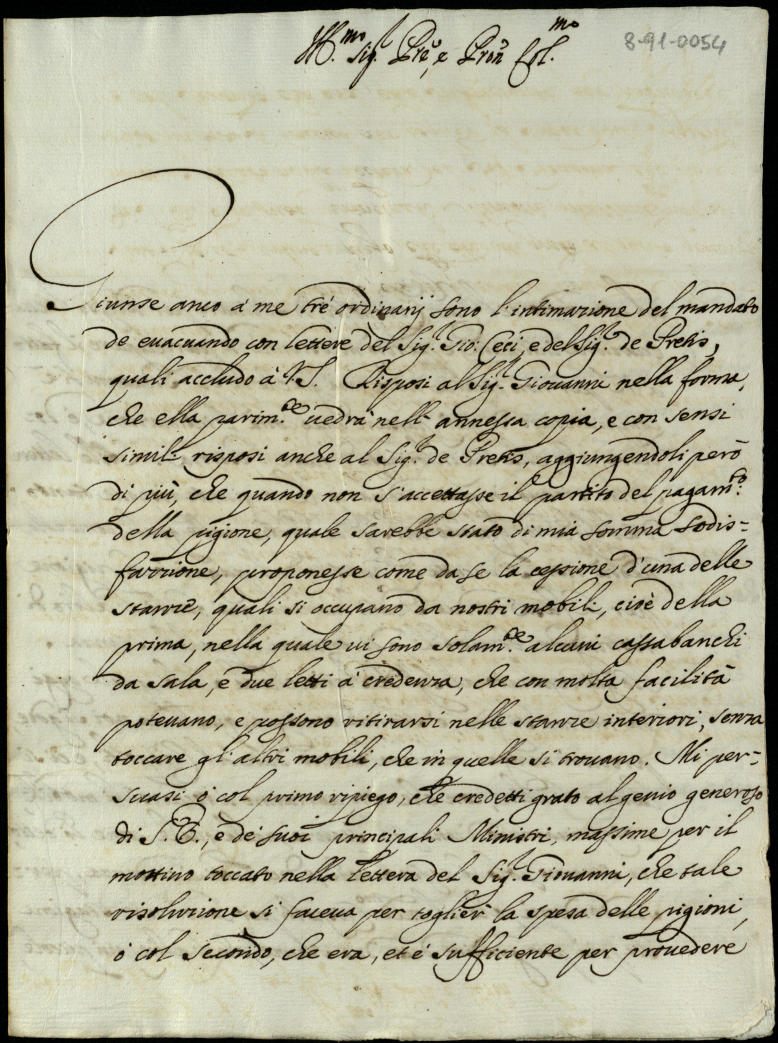 8-91-0054
Ill.mo Sig.r Pre e Pron Col.mo
Giunse anco a me tre ordinarij sono l'intimazione del mandato
de evacuando con lettere del Sig.r Gio: Ceci, e del Sig.r de Pretis,
quali accludo à V.S. Risposi al Sig.r Giovanni nella forma,
che ella parim.te vedrà nell'annessa copia, e con sensi
simili risposi anche al Sig.r de Pretis, aggiungendoli però
di più, che quando non s'accettasse il partito del pagam.to
della pigione, quale sarebbe stato di mia somma sodis=
fazzione, proponesse come da se la cessione d'una delle
stanze, quali si occupano da nostri mobili, cioè della
prima, nella quale vi sono solam.te alcuni cassabanchi
da sala, e due letti à credenza, che con molta facilità
potevano, e possono ritirarsi nelle stanze interiori, senza
toccare gl'altri mobili, che in quelle si trovano. Mi per=
suasi ò col primo ripiego, che credetti grato al genio generoso
di S.E., e de' suoi principali Ministri, massime per il
mottivo toccato nella lettera del Sig.r Giovanni, che tale
risoluzione si faceva per toglier la spesa delle pigioni,
ò col secondo, che era, et è sufficiente per provedere